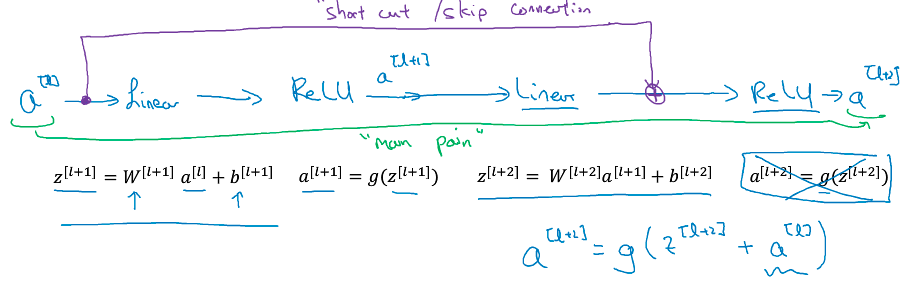 "short cut / skip connection
a^[l] → Linear → ReLU a^[l+1] → Linear → ReLU → a^[l+2]
"main pain"
z^[l+1] = W^[l+1] a^[l] + b^[l+1] a^[l+1] = g(z^[l+1]) z^[l+2] = W^[l+2] a^[l+1] + b^[l+2] a^[l+2] = g(z^[l+2])
a^[l+2] = g(z^[l+2] + a^[l])